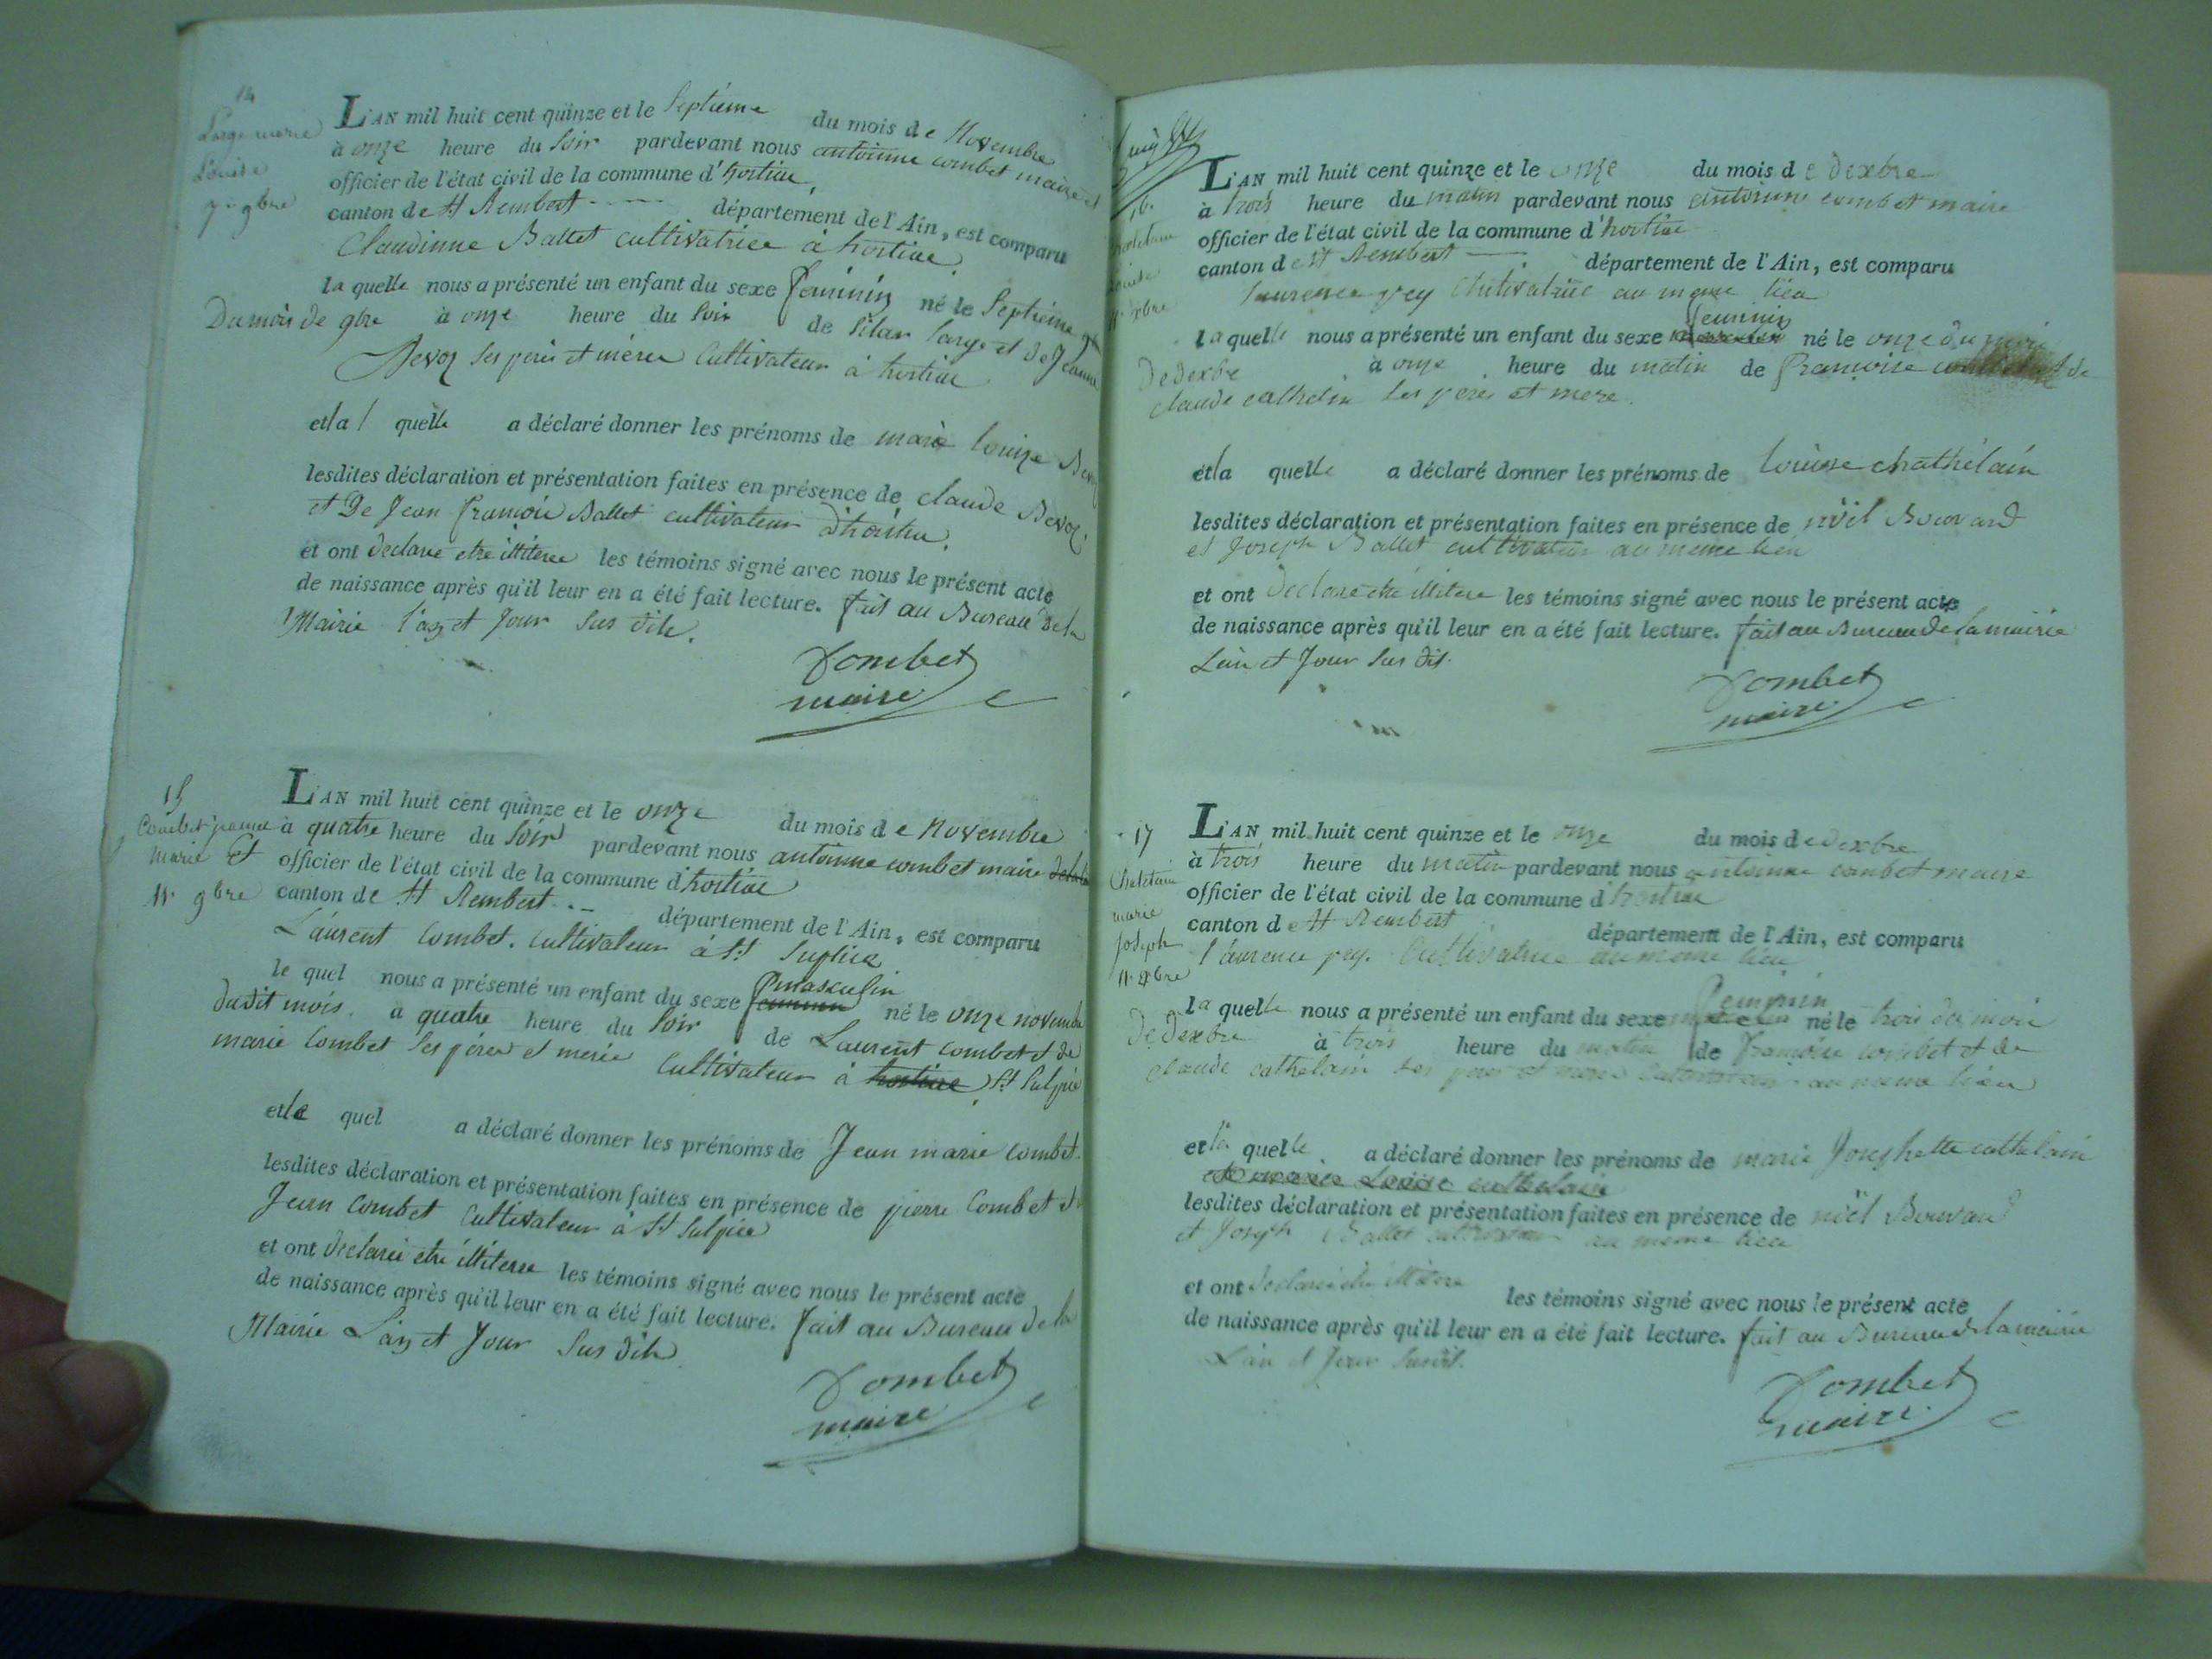 14
Large marie
Louise
7 9bre
L'AN mil huit cent quinze et le Septieme du mois de Novembre
à onze heure du soir pardevant nous antoinne combet maire et
officier de l'état civil de la commune d'hortiae
canton de St Rembert département de l'Ain, est comparu
Claudinne Ballet cultivatrice à hortiae
la quelle nous a présenté un enfant du sexe feminin né le Septieme
Du mois de 9bre à onze heure du soir de Large et de Jeanne
Bevoz ses peres et meres Cultivateur à hortiae
et la quelle a déclaré donner les prénoms de marie louize
lesdites déclaration et présentation faites en présence de claude Bevoz
et De Jean françois Ballet cultivateur d'hortiae
et ont declare etre illiteree les témoins signé avec nous le présent acte
de naissance après qu'il leur en a été fait lecture. fait au Bureau de la
Mairie l'an et Jour sus dits.
Combet
maire
15
Combet jeanne
marie
11 9bre
L'AN mil huit cent quinze et le onze du mois de Novembre
à quatre heure du soir pardevant nous antoinne combet maire
et officier de l'état civil de la commune d'hortiae
canton de St Rembert département de l'Ain, est comparu
Laurent Combet cultivateur à St Suplice
le quel nous a présenté un enfant du sexe masculin né le onze novembre
dudit mois. a quatre heure du soir de Laurent combet et de
marie Combet ses peres et meres Cultivateur à hortiae St Sulpice
et le quel a déclaré donner les prénoms de Jean marie combet
lesdites déclaration et présentation faites en présence de pierre Combet et
Jean Combet Cultivateur à St Sulpice
et ont declaré etre illiteree les témoins signé avec nous le présent acte
de naissance après qu'il leur en a été fait lecture. fait au Bureau de la
Mairie L'an et Jour sus dits
Combet
maire
16
Louise
11 xbre
L'AN mil huit cent quinze et le onze du mois de dexbre
à trois heure du matin pardevant nous antoinne combet maire
officier de l'état civil de la commune d'hortiae
canton de St Rembert département de l'Ain, est comparu
laurence pey Cultivatrice au meme lieu
feminin
la quelle nous a présenté un enfant du sexe né le onze du mois
De dexbre à onze heure du matin de françoise combet et de
claude cathelin ses peres et mere.
et la quelle a déclaré donner les prénoms de louise chathelain
lesdites déclaration et présentation faites en présence de noël Bouvard
et Joseph Ballet cultivateur au meme lieu
et ont Declare etre illitere les témoins signé avec nous le présent acte
de naissance après qu'il leur en a été fait lecture. fait au Bureau de la mairie
L'an et Jour sus dit.
Combet
maire
17
Chatelain
marie
Joseph
11 xbre
L'AN mil huit cent quinze et le onze du mois de dexbre
à trois heure du matin pardevant nous antoinne combet maire
officier de l'état civil de la commune d'hortiae
canton de St Rembert département de l'Ain, est comparu
laurence pey Cultivatrice au meme lieu
feminin
la quelle nous a présenté un enfant du sexe né le trois du mois
De dexbre à trois heure du matin de françoise combet et de
claude cathelain ses peres et meres Cultivateur au meme lieu
et la quelle a déclaré donner les prénoms de marie Josephette cathelain
marie Louise cathelain
lesdites déclaration et présentation faites en présence de noël Bouvard
et Joseph Ballet cultivateur au meme lieu
et ont declaré etre illitere les témoins signé avec nous le présent acte
de naissance après qu'il leur en a été fait lecture. fait au Bureau de la mairie
L'an et Jour susdit.
Combet
maire